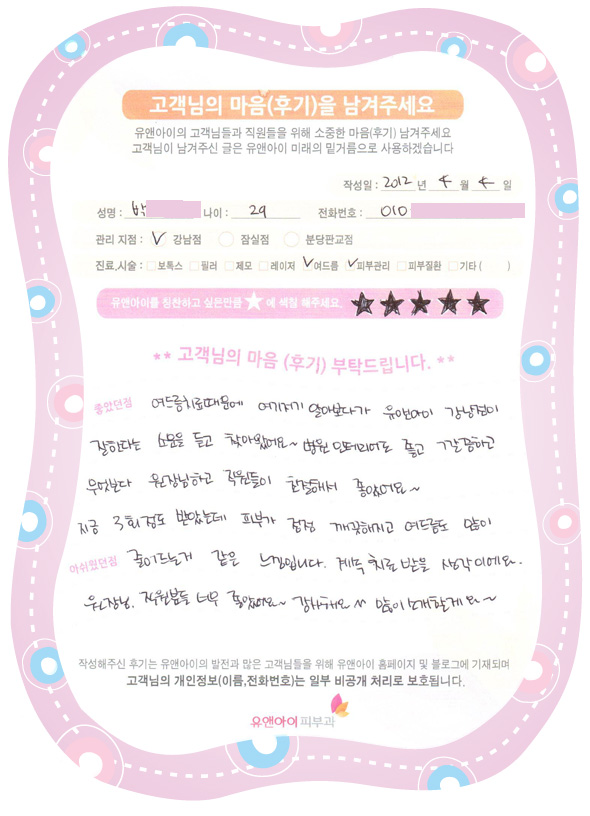 고객님의 마음(후기)을 남겨주세요
유앤아이의 고객님들과 직원들을 위해 소중한 마음(후기) 남겨주세요
고객님이 남겨주신 글은 유앤아이 미래의 밑거름으로 사용하겠습니다
작성일 : 2012 년 4 월 4 일
성명 : 박 나이 : 29 전화번호 : 010
관리 지점 : ✓ 강남점 잠실점 분당판교점
진료,시술 : 보톡스 필러 제모 레이저 ✓여드름 ✓피부관리 피부질환 기타 ( )
유앤아이를 칭찬하고 싶은만큼 ★ 에 색칠 해주세요. ★★★★★
** 고객님의 마음 (후기) 부탁드립니다. **
좋았던점 여드름치료때문에 여기저기 알아보다가 유앤아이 강남점이
잘한다는 소문을 듣고 찾아왔어요~ 병원 인테리어도 좋고 깔끔하고
무엇보다 원장님하고 직원들이 친절해서 좋았어요~
지금 3회정도 받았는데 피부가 점점 깨끗해지고 여드름도 많이
아쉬웠던점 줄어드는거 같은 느낌입니다. 계속 치료 받을 생각이에요.
원장님, 직원분들 너무 좋았어요~ 감사해요 ^^ 많이 소개할게요~
작성해주신 후기는 유앤아이의 발전과 많은 고객님들을 위해 유앤아이 홈페이지 및 블로그에 기재되며
고객님의 개인정보(이름,전화번호)는 일부 비공개 처리로 보호됩니다.
유앤아이피부과